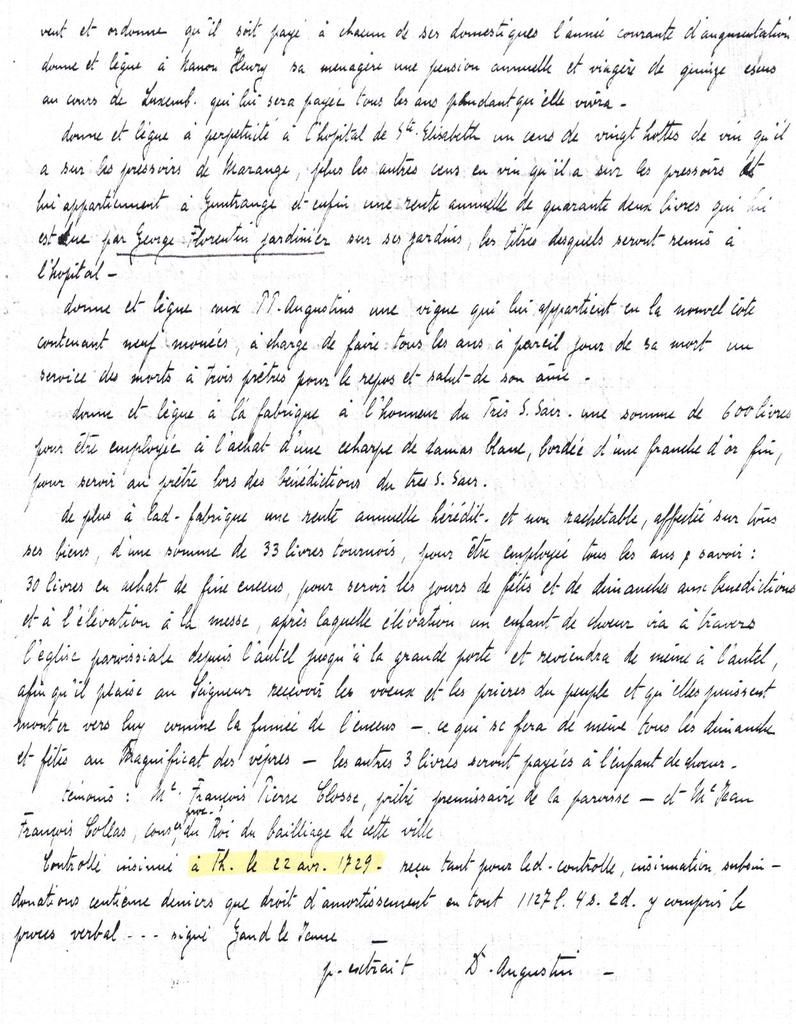 veut et ordonne qu'il soit payé à chacun de ses domestiques l'année courante d'augmentation
donne et lègue à Nanon Henry sa menagère une pension annuelle et viagère de quinze escus
au cours de Luxemb. qui lui sera payée tous les ans pendant qu'elle vivra -
donne et lègue à perpetuité à l'hopital de Ste. Elisabeth un cens de vingt hottes de vin qu'il
a sur les pressoirs de Marange, plus les autres cens en vin qu'il a sur les pressoirs et
lui appartiennent à Guntrange et enfin une rente annuelle de quarante deux livres qui lui
est due par George Florentin jardinier sur ses jardins, les titres desquels seront remis à
l'hopital -
donne et lègue aux PP. Augustins une vigne qui lui appartient en la nouvel côte
contenant neuf mouées, à charge de faire tous les ans à pareil jour de sa mort un
service des morts à trois prêtres pour le repos et salut de son âme -
donne et lègue à la fabrique à l'honneur du Très S. Sacr. une somme de 600 livres
pour être employée à l'achat d'une echarpe de damas blanc, bordée d'une franche d'or fin,
pour servir au prêtre lors des bénédictions du tres S. Sacr.
de plus à lad. fabrique une rente annuelle hérédit. et non rachetable, affectée sur tous
ses biens, d'une somme de 33 livres tournois, pour être employée tous les ans, savoir :
30 livres en achat de fine encens, pour servir les jours de fêtes et de dimanches aux benedictions
et à l'élévation à la messe, après laquelle élévation un enfant de choeur ira à travers
l'eglise paroissiale depuis l'autel jusqu'à la grande porte et reviendra de même à l'autel,
afin qu'il plaise au Seigneur recevoir les voeux et les prieres du peuple et qu'elles puissent
monter vers luy comme la fumée de l'encens - ce qui se fera de même tous les dimanche
et fêtes au Magnificat des vêpres - les autres 3 livres seront payées à l'enfant de choeur -
témoins : Mr. François Pierre Closse, prêtre premissaire de la paroisse - et Mr Jean
François Collas, conser proc. du Roi du bailliage de cette ville
Controllé insinué à Th. le 22 avr. 1729 - reçu tant pour led. controlle, insinuation, subsin-
donations centième deniers que droit d'amortissement en tout 1127 l. 4 s. 2 d. y compris le
proces verbal --- signé Gand le Jeune
p. extrait D. Augustin -